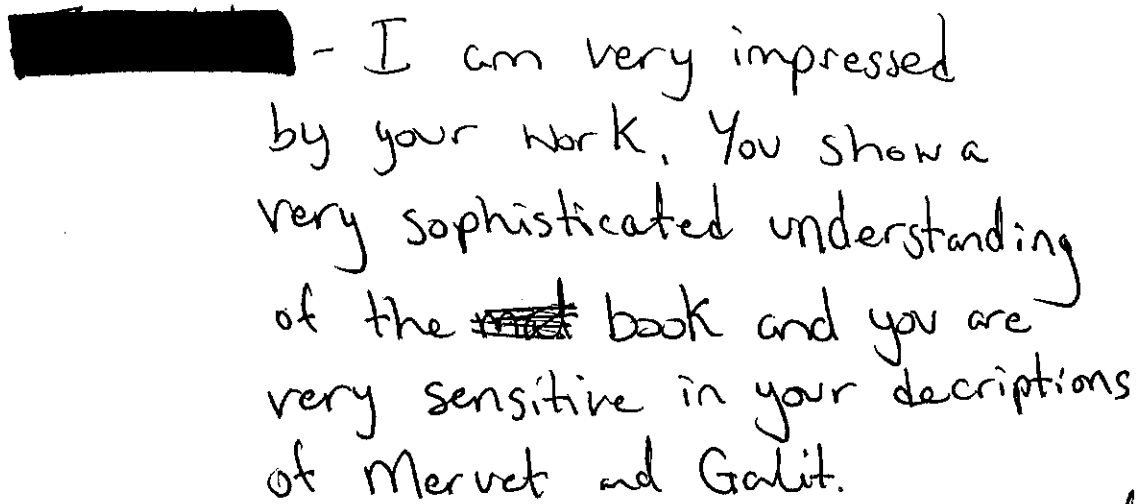 - I am very impressed
by your work. You show a
very sophisticated understanding
of the book and you are
very sensitive in your decriptions
of Mervet and Galit.